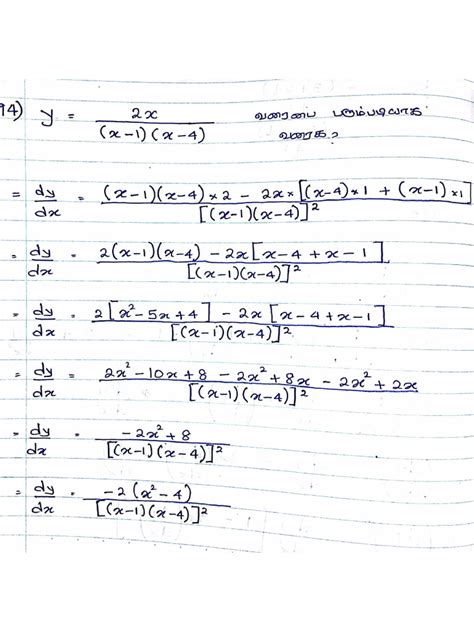 94) y = 2x / (x-1)(x-4) வரைபை பரும்படியாக
வரைக?
= dy/dx = (x-1)(x-4)×2 - 2x×[(x-4)×1 + (x-1)×1] / [(x-1)(x-4)]²
= dy/dx = 2(x-1)(x-4) - 2x[x-4+x-1] / [(x-1)(x-4)]²
= dy/dx = 2[x²-5x+4] - 2x[x-4+x-1] / [(x-1)(x-4)]²
= dy/dx = 2x²-10x+8 - 2x²+8x - 2x²+2x / [(x-1)(x-4)]²
= dy/dx = -2x²+8 / [(x-1)(x-4)]²
= dy/dx = -2(x²-4) / [(x-1)(x-4)]²